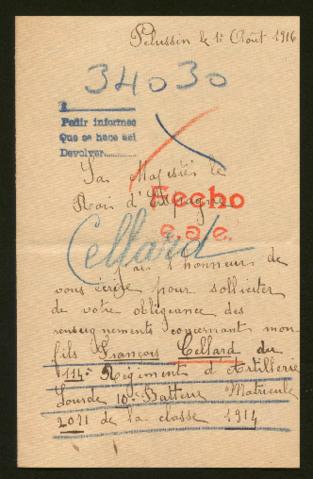 Pelussin le 1r Août 1916
34030
Pedir informes
Que se hace así
Devolver
Sa Majesté le
Roi d'Espagne
Hecho
e.a.e.
Cellard
J'ai l'honneur de
vous écrire pour solliciter
de votre obligeance des
renseignements concernant mon
fils François Cellard du
114e Régiment d'Artillerie
Lourde 10e Batterie Matricule
2011 de la classe 1914